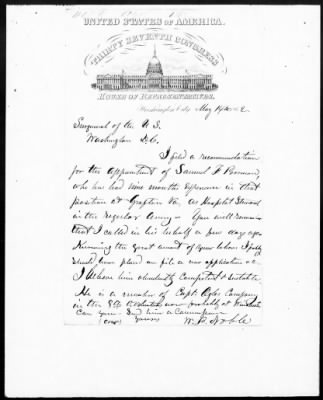 UNITED STATES OF AMERICA.
THIRTY SEVENTH CONGRESS
HOUSE OF REPRESENTATIVES.
Washington City May 14th 1862
Surgeon of the U. S.
Washington D.C.
I filed a recommendation
for the appointment of Samuel F
who has had nine months experience in that
position at Grafton Va. as Hospital Steward
in the regular Army - You will remember
that I called in his behalf a few days ago
Knowing the great amount of your labors I
should have placed on file a new application &c.
I believe him abundantly competent & suitable
He is a member of Capt Company
in the now probably at
Can you send him a Commission
(over) Yours
W. P. Noble